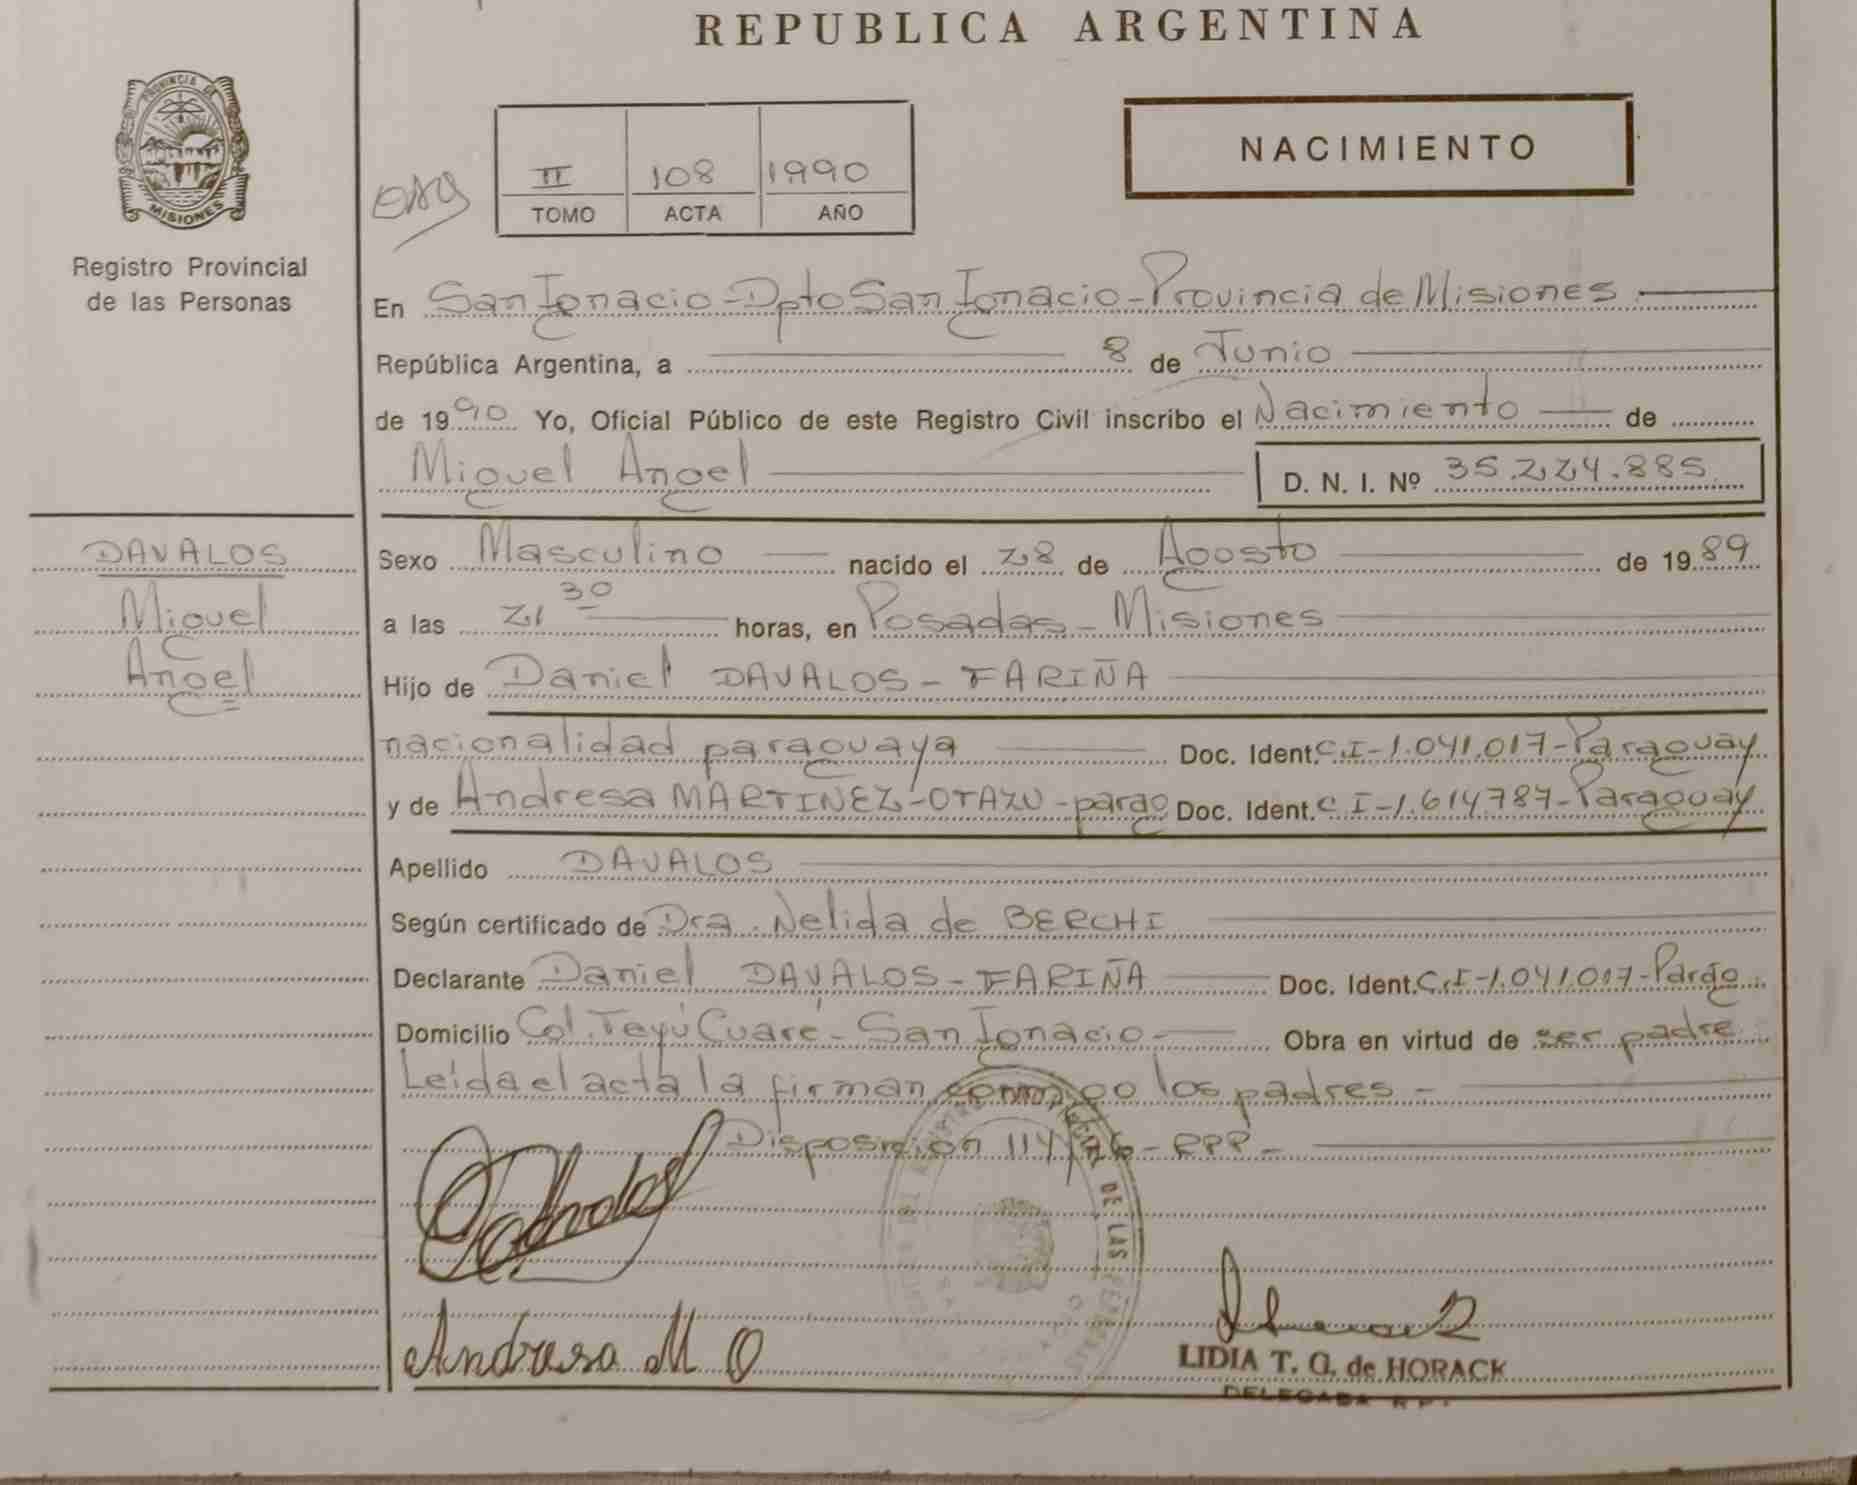 REPUBLICA ARGENTINA
PROVINCIA DE
MISIONES
Registro Provincial
de las Personas
II 108 1990
TOMO ACTA AÑO
NACIMIENTO
En San Ignacio - Dpto San Ignacio - Provincia de Misiones
República Argentina, a 8 de Junio
de 1990 Yo, Oficial Público de este Registro Civil inscribo el Nacimiento de
Miguel Angel
D. N. I. Nº 35.224.885
DAVALOS
Miguel
Angel
Sexo Masculino nacido el 28 de Agosto de 1989
a las 21 30 horas, en Posadas - Misiones
Hijo de Daniel DAVALOS - FARIÑA
nacionalidad paraguaya Doc. Ident. C.I-1.041.017-Paraguay
y de Andresa MARTINEZ-OTAZU-parag Doc. Ident. C.I-1.614787-Paraguay
Apellido DAVALOS
Según certificado de Dra. Nelida de BERCHI
Declarante Daniel DAVALOS - FARIÑA Doc. Ident. C.I-1.041.017-Parag
Domicilio Col. Teyú Cuaré - San Ignacio - Obra en virtud de ser padre
Leída el acta la firman conmigo los padres -
Disposición 114/76 - RPP -
DE LAS
Andresa M O
LIDIA T. G. de HORACK
DELEGADA R.P.